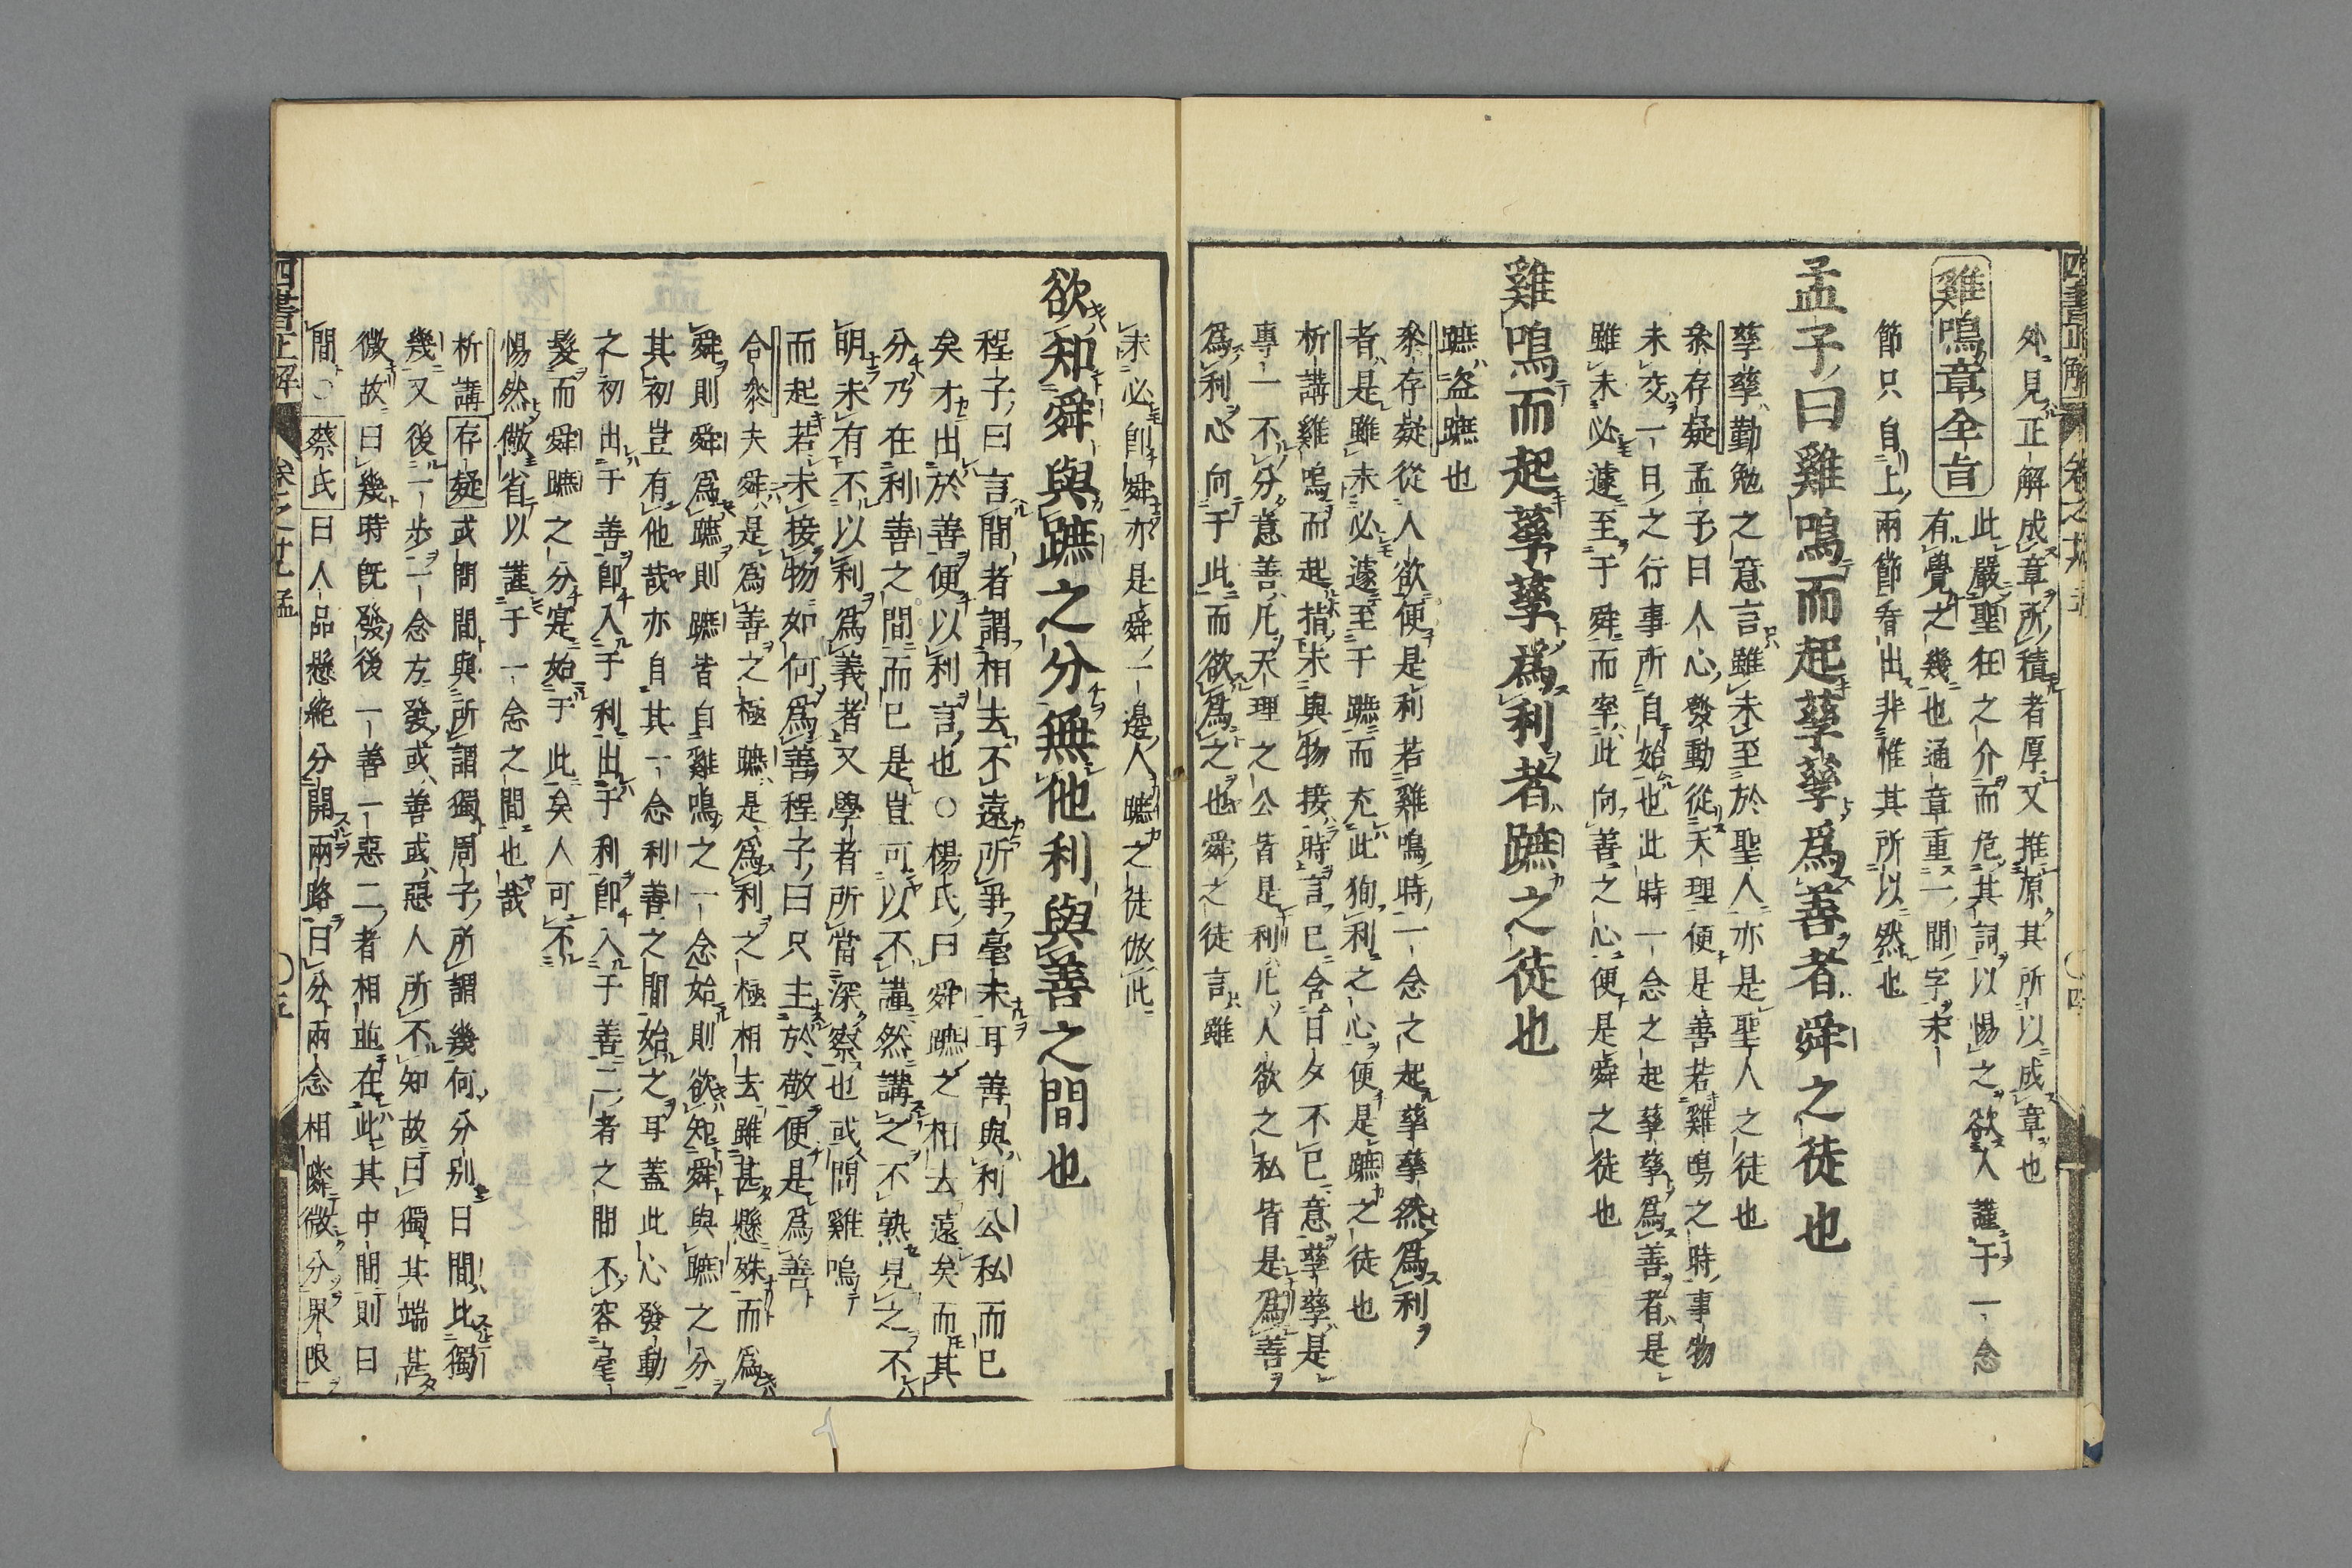 四書正解 卷之十九孟 ○四
外見正解成章所積者厚又推原其所以成章也
雞鳴章全旨 此嚴聖狂之介而危其詞以惕之欲人謹于一念
有覺之幾也通章重一間字末
節只自上兩節看出非惟其所以然也
孟子曰雞鳴而起孳孳爲善者舜之徒也
孳孳勤勉之意言雖未至於聖人亦是聖人之徒也
叅存疑孟子曰人心發動從天理便是善若雞鳴之時事物
未交一日之行事所自始也此時一念之起孳孳爲善者是
雖未必遽至于舜而率此向善之心便是舜之徒也
雞鳴而起孳孳爲利者蹠之徒也
蹠盗蹠也
叅存疑從人欲便是利若雞鳴時一念之起孳孳然爲利
者是雖未必遽至于蹠而充此狥利之心便是蹠之徒也
析講雞鳴而起指未與物接時言已含日夕不已意孳孳是
專一不分意善凡天理之公皆是利凡人欲之私皆是爲善
爲利心向于此而欲爲之也舜之徒言雖
未必卽舜亦是舜一邊人蹠之徒倣此
欲知舜與蹠之分無他利與善之間也
程子曰言間者謂相去不遠所爭毫末耳善與利公私而已
矣才出於善便以利言也○楊氏曰舜蹠之相去遠矣而其
分乃在利善之間而已是豈可以不謹然講之不熟見之不
明未有不以利爲義者又學者所當深察也或問雞鳴
而起若未接物如何爲善程子曰只主於敬便是爲善
合叅夫舜是爲善之極蹠是爲利之極相去雖甚懸殊而爲
舜則舜爲蹠則蹠皆自雞鳴之一念始則欲知舜與蹠之分
其初豈有他哉亦自其一念利善之間始之耳蓋此心發動
之初出于善卽入于利出于利卽入于善二者之間不容毫
髮而舜蹠之分寔始于此矣人可不
惕然儆省以謹于一念之間也哉
析講存疑或問間與所謂獨周子所謂幾何分别曰間比獨
幾又後一步一念方發或善或惡人所不知故曰獨其端甚
微故曰幾時既發後一善一惡二者相並在此其中間則曰
間○蔡氏曰人品懸絶分開兩路曰分兩念相隣微分界限
四書正解 卷之十九孟 ○五